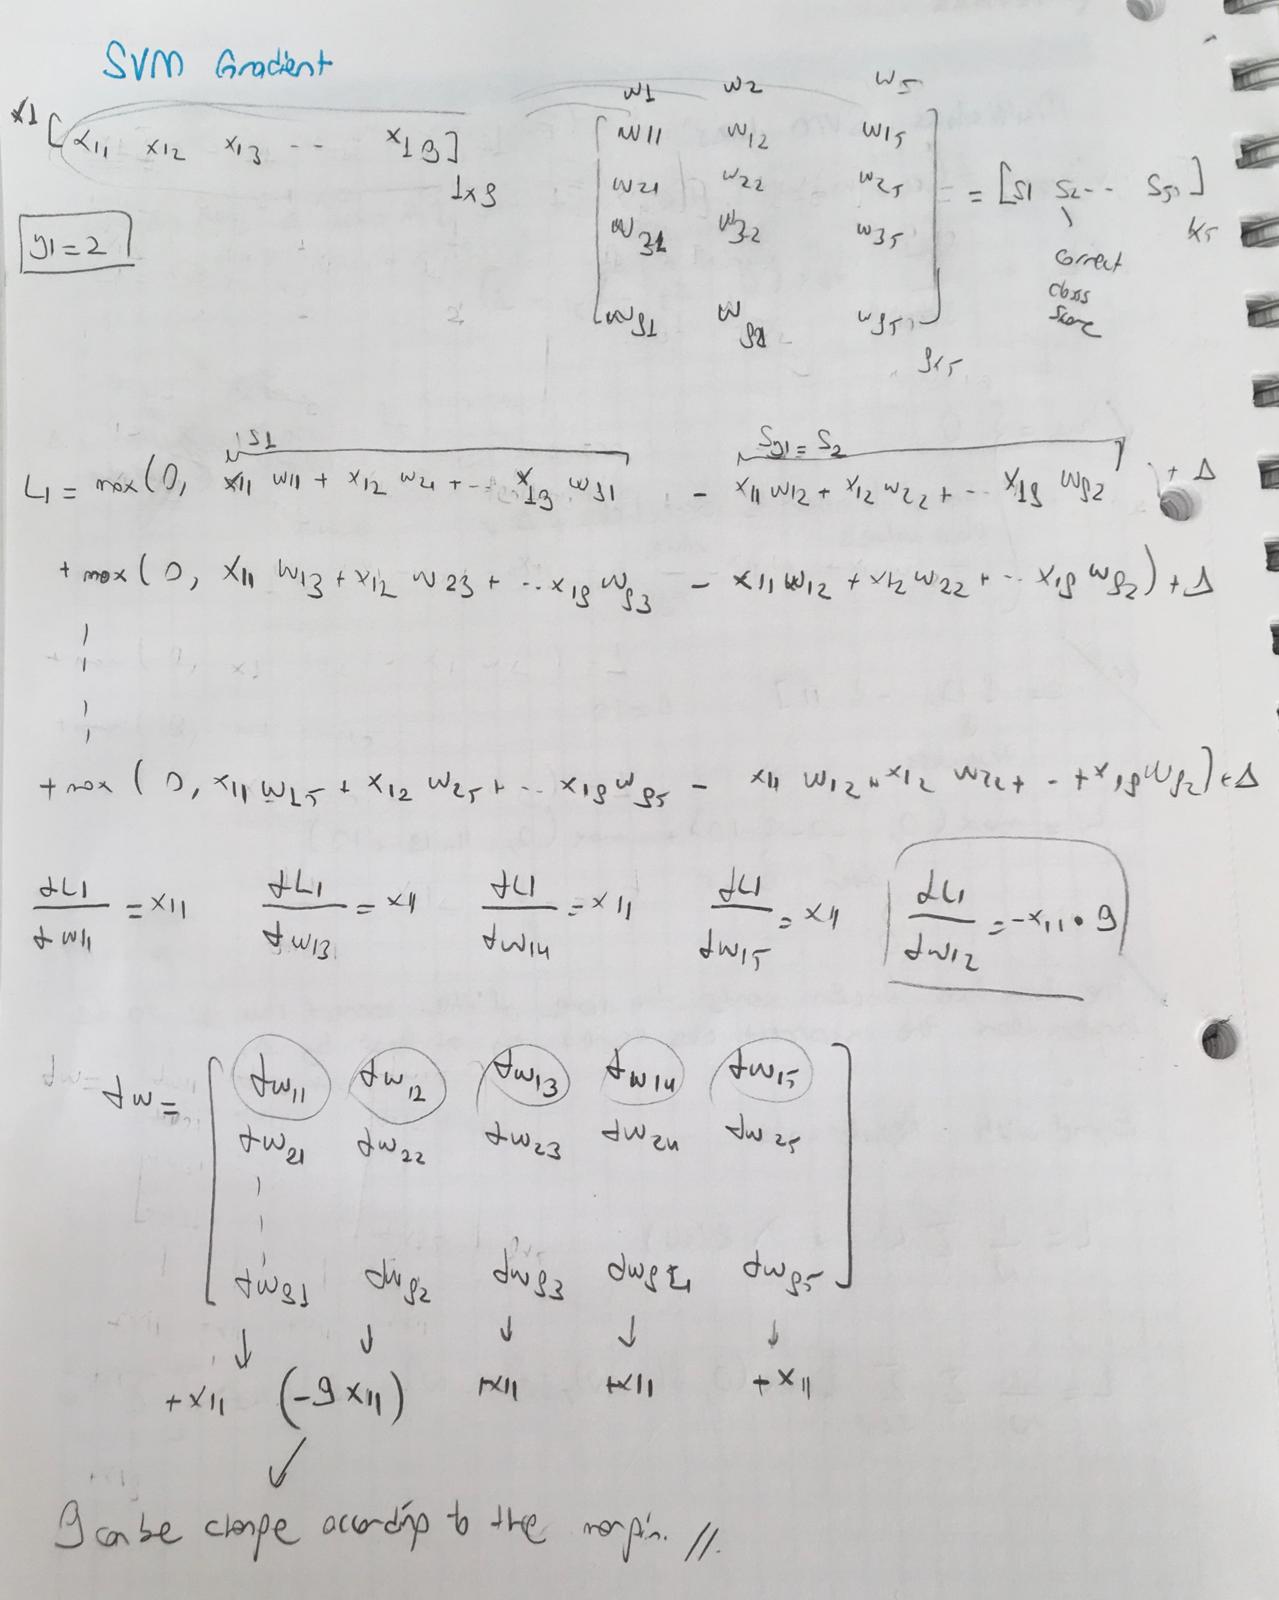 SVM Gradient
w1 w2 w5
x1 [x11 x12 x13 -- x19] 1x9
[w11 w12 w15
w21 w22 w25
w31 w32 w35
w91 w92 w95] 9x5
= = [S1 S2-- S5] 1x5
y1=2
correct
class
score
S1 Sy1 = S2
L1 = max(0, x11 w11 + x12 w21 + -- x19 w91 - x11 w12 + x12 w22 + -- x19 w92) + Δ
+ max(0, x11 w13 + x12 w23 + ... x19 w93 - x11 w12 + x12 w22 + -- x19 w92) + Δ
+ max (0, x11 w15 + x12 w25 + -- x19 w95 - x11 w12 + x12 w22 + - + x19 w92) + Δ
dL1/dw11 = x11 dL1/dw13 = x11 dL1/dw14 = x11 dL1/dw15 = x11 dL1/dw12 = -x11 • 9
dw = [dw11 dw12 dw13 dw14 dw15
dw21 dw22 dw23 dw24 dw25
dw91 dw92 dw93 dw94 dw95]
↓ ↓ ↓ ↓ ↓
+x11 (-9 x11) +x11 +x11 +x11
9 can be change according to the margin. //.